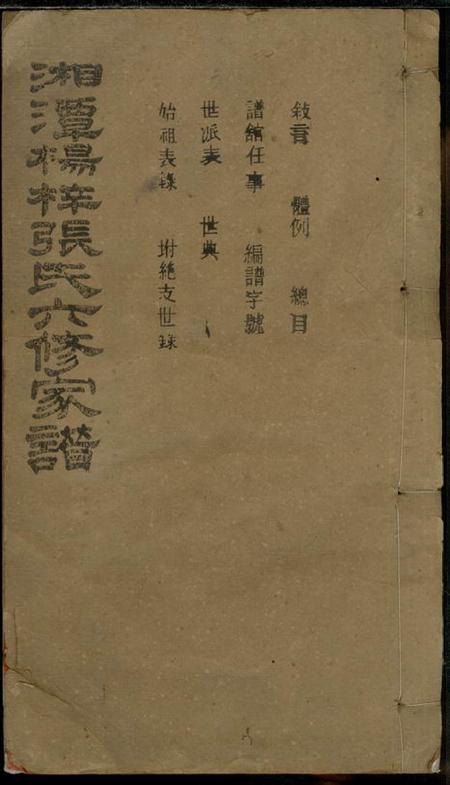 敘言 體例 總目
譜館任事 編譜字號
世派表 世典
始祖表錄 坿絶支世录
湘潭楊梓張氏六修家譜